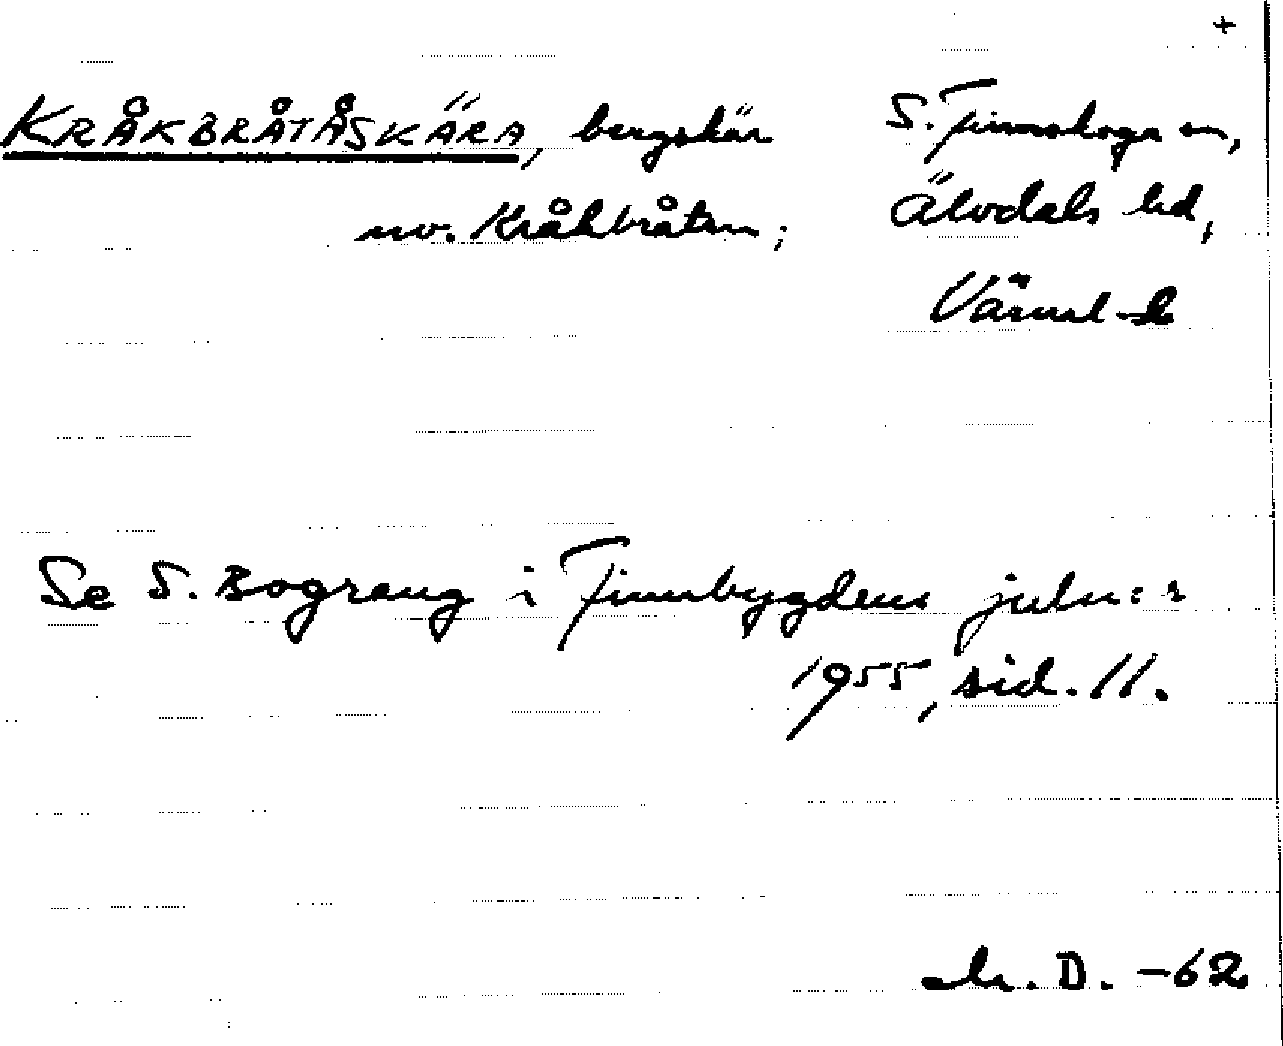 +
KRÅKBRÅTÅSKÄRA, bergskär S. Finnskoga sn,
nv. Kråkbråten; Älvdals hd,
Värml-d
Se S. Bograng i Finnbygdens juln:r
1955, sid. 11.
D. -62